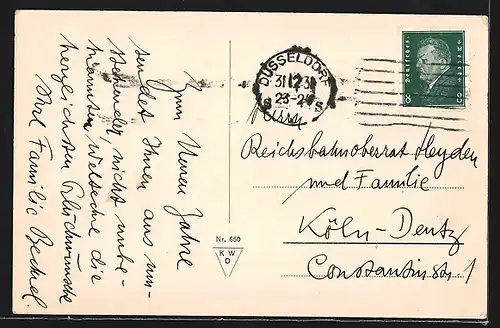 Zum Neuen Jahre
sendet Ihnen aus uns-
nicht unbe-
kannten Weltecke die
herzlichsten Glückwünsche
Familie Bechel
DÜSSELDORF
31 12 31
23-24
S S
Deutsches Reich
8 8
Herrn
Reichsbahnoberrat Heyden
und Familie
Köln-Deutz
Constantinstr. 1
Nr. 650
K W
D